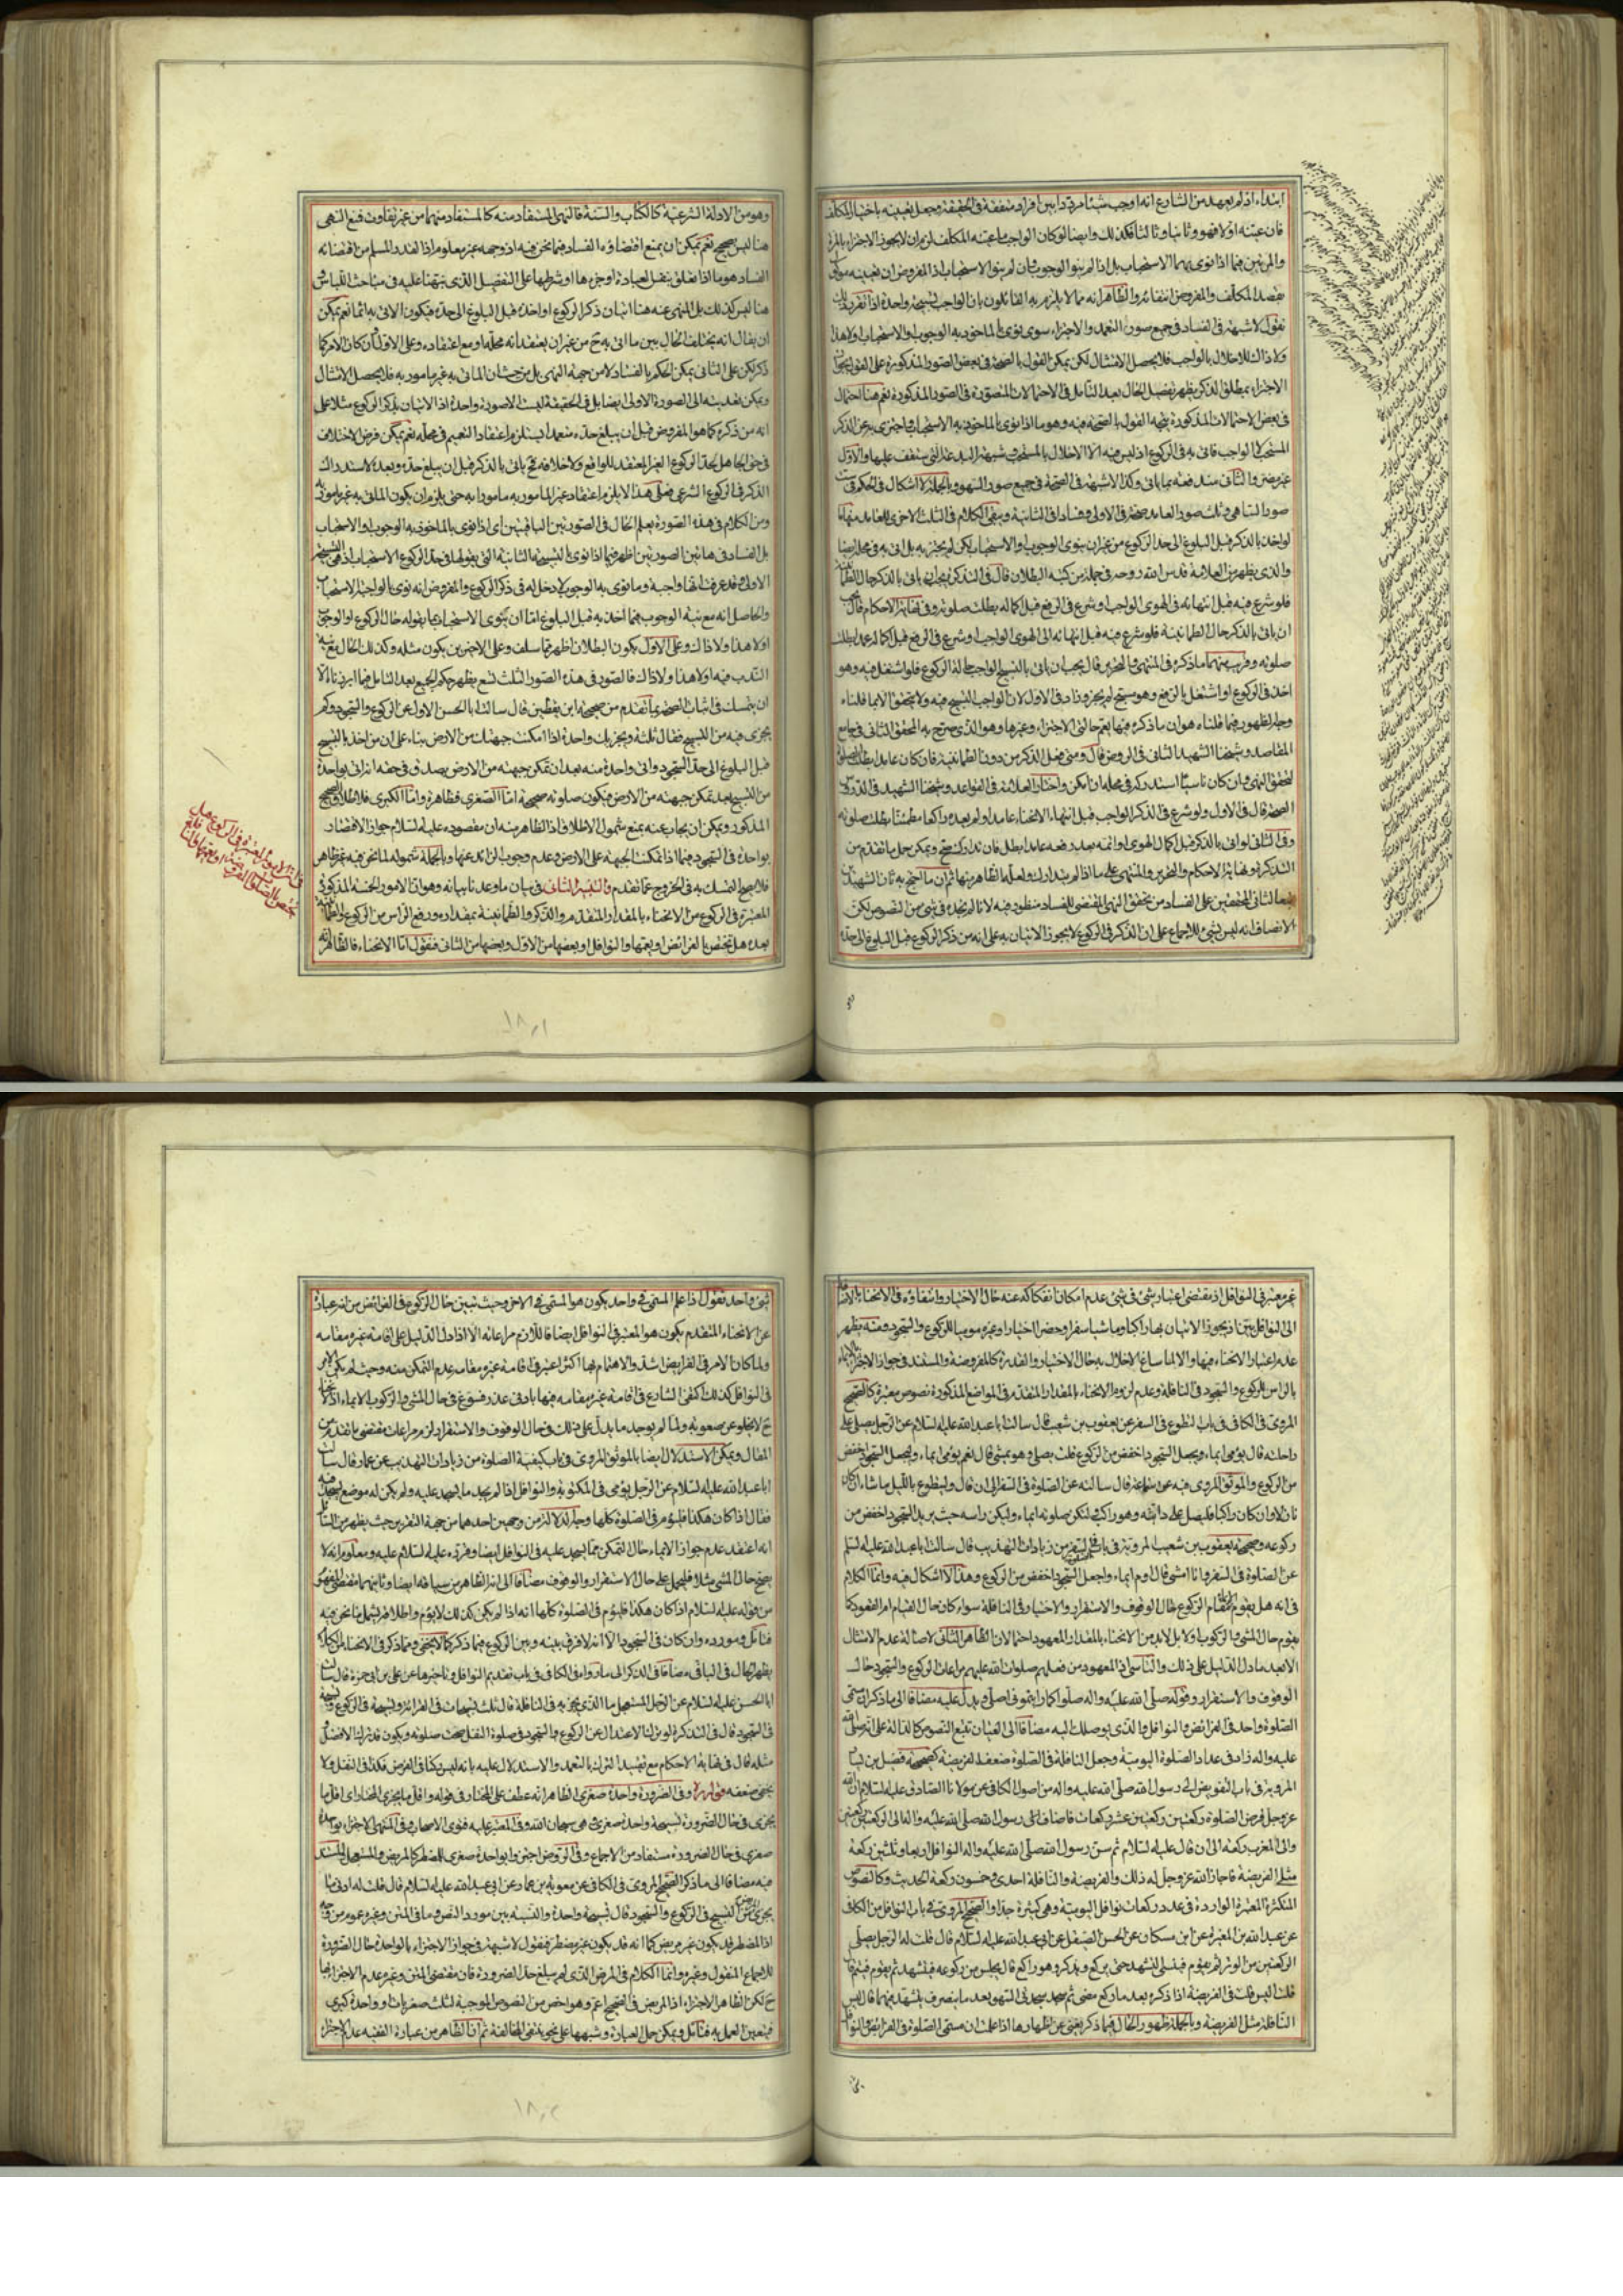 ابتداء اذ لم يعهد من الشارع انه اوجب شيئا مرددا بين افراد متفقة فى الحقيقة وجعل تعيينه باختيار المكلف
فان عينه اولا فهو وثانيا وثالثا فكذلك وايضا لو كان الواجب ما عينه المكلف لزم ان لا يجوز الاجتزاء بالمرة
والمرتين فيما اذا نوى بهما الاستحباب بل اذا لم ينو الوجوب وان لم ينو الاستحباب اذ المفروض ان تعيينه
بقصد المكلف والمفروض انتفائه والظاهر انه مما لا يلتزم به القائلون بان الواجب تسبيحة واحدة اذا تقرر ذلك
نقول لا شبهة فى الفساد فى جميع صور التعمد والاجتزاء سوى نوى بالماخوذ به الوجوب والاستحباب او لا هذا
ولا ذاك للاخلال بالواجب فلا يحصل الامتثال لكن يمكن القول بالصحة فى بعض الصور المذكورة على القول بجواز
الاجتزاء بمطلق الذكر يظهر تفصيل الحال بعد التامل فى الاحتمالات المتصورة فى الصور المذكورة نعم هنا احتمال
فى بعض الاحتمالات المذكورة يتجه القول بالصحة فيه وهو ما اذا نوى بالماخوذ به الاستحباب واجتزى به عن الذكر
المستحب لا الواجب فاتى به فى الركوع اذ ليس فيه الا الاخلال بالمستحب شبهة البدعة التى ستقف عليها والاول
غير مضر والثانى ستدفعه بما ياتى وكذا لا شبهة فى الصحة فى جميع صور السهو وبالجملة لا اشكال فى الحكم فى ست
صور الساهى وثلث صور العامد صحة فى الاولى وفسادا فى الثانية وبقى الكلام فى الثلث الاخرى للعامد منها ما
لو اخذ بالذكر قبل البلوغ الى حد الركوع من غير ان ينوى الوجوب والاستحباب لكن لم يجتز به بل اتى به فى محله ايضا
والذى يظهر من العلامة قدس الله روحه فى جملة من كتبه البطلان قال فى التذكرة يجب ان ياتى بالذكر حال الطمأنينة
فلو شرع فيه قبل انتهائه فى الهوى الواجب او شرع فى الرفع قبل اكماله بطلت صلوته وفى نهاية الاحكام قال يجب
ان ياتى بالذكر حال الطمانينة فلو شرع فيه قبل انتهائه الى الهوى الواجب او شرع فى الرفع قبل اكماله عمدا بطلت
صلوته وقريب منهما ما ذكره فى المنتهى والتحرير قال يجب ان ياتى بالتسبيح الواجب حالة الركوع فلو اشتغل فيه وهو
اخذ فى الركوع او اشتغل بالرفع وهو يسبح لم يجزه وزاد فى الاول لان الواجب التسبيح فيه ولا يتحقق الا بما قلناه
وجه الظهور فيما قلناه هو ان ما ذكره فيها يعم حالتى الاجتزاء وغيرها وهو الذى صرح به المحقق الثانى فى جامع
المقاصد وشيخنا الشهيد الثانى فى الروض قال ومتى فعل الذكر من دون الطمانينة فان كان عامدا بطلت الصلوة
لتحقق النهى وان كان ناسيا استدركه فى محله ان امكن واختار العلامة فى القواعد وشيخنا الشهيد فى الدروس
الصحة قال فى الاول ولو شرع فى الذكر الواجب قبل انتهاء الانحناء عامدا ولم يعده راكعا مطمئنا بطلت صلوته
وفى الثانى لو اتى بالذكر قبل كمال الهوى او اتمه بعد رفعه عامدا بطل فان تداركه صح ويمكن حمل ما تقدم من
التذكرة ونهاية الاحكام والتحرير والمنتهى على ما اذا لم يتدارك ولعل ما الظاهر منها ثم ان ما احتج به ثان الشهيدين
تبعا لثانى المحققين على الفساد من تحقق النهى المقتضى للفساد منظور فيه لانا لم نجده فى شئ من النصوص لكن
الانصاف انه ليس لشئ للاجماع على ان الذكر فى الركوع لا يجوز الاتيان به على انه من ذكر الركوع قبل البلوغ الى حده
وهو من الادلة الشرعية كالكتاب والسنة فالنهى المستفاد منه كالمستفاد منهما من غير تفاوت فمنع النهى
هنا ليس صحيح نعم يمكن ان يمنع اقتضاؤه الفساد فيما نحن فيه اذ وجهه غير معلوم اذ القدر المسلم من اقتضائه
الفساد هو ما اذا تعلق بنفس العبادة او جزءها او شرطها على التفصيل الذى نبهنا عليه فى مباحث اللباس و
هنا ليس كذلك بل المنهى عنه هنا اتيان ذكر الركوع او اخذه قبل البلوغ الى حده فيكون الاتى به اثما نعم يمكن
ان يقال انه يختلف الحال بين ما اتى به ح من غير ان يعتقد انه محله او مع اعتقاده وعلى الاول وان كان الامر كما
ذكر لكن على الثانى يمكن الحكم بالفساد لا من جهة النهى بل من حيث ان الماتى به غير مامور به فلا يحصل الامتثال
ويمكن تعديته الى الصورة الاولى ايضا بل فى الحقيقة ليست الا صورة واحدة اذ الاتيان بذكر الركوع مثلا على
انه من ذكره كما هو المفروض قبل ان يبلغ حده متعمدا يستلزم اعتقاد التعميم فى محله نعم يمكن فرض الاختلاف
فى حق الجاهل بحد الركوع الغير المعتقد للواقع ولا خلافه فح ياتى بالذكر قبل ان يبلغ حده وبعده لاستدراك
الذكر فى الركوع الشرعى فعلى هذا لا يلزم اعتقاد غير المامور به مامورا به حتى يلزم ان يكون الماتى به غير مامور به
ومن الكلام فى هذه الصورة يعلم الحال فى الصورتين الباقيتين اى اذا نوى بالماخوذ به الوجوب او الاستحباب
بل الفساد فى هاتين الصورتين اظهر فيما اذا نوى بالتسبيحة الثانية التى يقولها فى حد الركوع الاستحباب اذ هى التسبيحة
الاولى وقد عرفت انها واجبة وما نوى به الوجوب لا دخل له فى ذكر الركوع والمفروض انه نوى بالواجب الاستحباب
والحاصل انه مع نية الوجوب فيما اخذ به قبل البلوغ اما ان ينوى الاستحباب بما يقوله حال الركوع او الوجوب
او لا هذا ولا ذاك وعلى الاول يكون البطلان اظهر مما سلف وعلى الاخيرين يكون مثله وكذلك الحال مع نية
الندب فيه او لا هذا ولا ذاك فالصور فى هذه الصور الثلث تسع يظهر حكم الجميع بعد التامل فيما ابرزناه الا
ان يتمسك فى اثبات الصحة بما تقدم من صحيحة ابن يقطين قال سالت ابا الحسن الاول عن الركوع والسجود وكم
يجزى فيه من التسبيح فقال ثلثة ويجزيك واحدة اذا امكنت جبهتك من الارض بناء على ان من اخذ بالتسبيح
قبل البلوغ الى حد السجود واتى واحدة منه بعد ان تمكن جبهته من الارض يصدق فى حقه انه اتى بواحدة
من التسبيح بعد تمكن جبهته من الارض فيكون صلوته صحيحة اما الصغرى فظاهرة واما الكبرى فلاطلاق الصحيح
المذكور ويمكن ان يجاب عنه بمنع شمول الاطلاق اذ الظاهر منه ان مقصوده عليه السلام جواز الاقتصار
بواحدة فى السجود فيما اذا تمكنت الجبهة على الارض وعدم وجوب الزائد عنها وبالجملة شموله لما نحن فيه غير ظاهر
فلا يصح التمسك به فى الخروج عما تقدم والتنبيه الثانى فى بيان ما وعدنا بيانه وهو ان الامور الخمسة المذكورة
المعتبرة فى الركوع من الانحناء بالمقدار المتقدم والذكر والطمانينة بمقداره ورفع الراس من الركوع والطمانينة
بعده هل تختص بالفرائض او يعمها والنوافل او بعضها من الاول وبعضها من الثانى فنقول اما الانحناء فالظاهر انه
١٨٠١
غير معتبر فى النوافل اذ يقتضى اعتبار شئ فى شئ عدم امكان انفكاكه عنه حال الاختيار وانتفاؤه فى الانحناء بالنسبة
الى النوافل بين اذ يجوز الاتيان بها راكبا وماشيا سفرا وحضرا اختيارا وغيره موميا للركوع والسجود ومنه يظهر
عدم اعتبار الانحناء فيها والا لما ساغ الاخلال به حال الاختيار والقدرة كالمفروضة والمستند فى جواز الاجتزاء بالايماء
بالراس للركوع والسجود فى النافلة وعدم لزوم الانحناء بالمقدار المتقدم فى المواضع المذكورة نصوص معتبرة كالصحيح
المروى فى الكافى فى باب التطوع فى السفر عن يعقوب بن شعيب قال سالت ابا عبد الله عليه السلام عن الرجل يصلى على
راحلته قال يومى ايماء ويجعل السجود اخفض من الركوع قلت يصلى وهو يمشى قال نعم يومى ايماء وليجعل السجود اخفض
من الركوع والموثق المروى فيه عن سماعة قال سالته عن الصلوة فى السفر الى ان قال وليتطوع بالليل ما شاء ان كان
نازلا وان كان راكبا فليصل على دابته وهو راكب ولتكن صلوته ايماء وليكن راسه حيث يريد السجود اخفض من
ركوعه وصحيحة يعقوب بن شعيب المروية فى باب السفر من زيادات التهذيب قال سالت ابا عبد الله عليه السلم
عن الصلوة فى السفر وانا امشى قال اوم ايماء واجعل السجود اخفض من الركوع وهذا لا اشكال فيه وانما الكلام
فى انه هل يقوم مقام الركوع حال الوقوف والاستقرار والاختيار فى النافلة سواء كان حال القيام ام القعود كما
يقوم حال المشى والركوب او لا بل لابد من الانحناء بالمقدار المعهود احتمالان الظاهر الثانى لاصالة عدم الامتثال
الا بعد ما دل الدليل على ذلك والتاسى اذ المعهود من فعلهم صلوات الله عليهم مراعات الركوع والسجود حال
الوقوف والاستقرار وقوله صلى الله عليه واله صلوا كما رايتمونى اصلى ويدل عليه مضافا الى ما ذكر ان مسمى
الصلوة واحد فى الفرائض والنوافل والذى يوصلك اليه مضافا الى العيان تتبع النصوص كالدالة على انه صلى الله
عليه واله زاد فى عداد الصلوة اليومية وجعل النافلة فى الصلوة ضعف الفريضة كصحيحة فضيل بن يسار
المروية فى باب التفويض الى رسول الله صلى الله عليه واله من اصول الكافى عن مولانا الصادق عليه السلام ان الله
عز وجل فرض الصلوة ركعتين ركعتين عشر ركعات فاضاف الى رسول الله صلى الله عليه واله الى الركعتين ركعتين
والى المغرب ركعة الى ان قال عليه السلام ثم سن رسول الله صلى الله عليه واله النوافل اربعا وثلثين ركعة
مثلى الفريضة فاجاز الله عز وجل له ذلك والفريضة والنافلة احدى وخمسون ركعة الحديث وكالنصوص
المتكثرة المعتبرة الواردة فى عدد ركعات نوافل اليومية وهى كثيرة جدا والصحيح المروى فى باب النوافل من الكافى
عن عبد الله بن المغيرة عن ابن مسكان عن الحسن الصيقل عن ابى عبد الله عليه السلام قال قلت له الرجل يصلى
الركعتين من الوتر ثم يقوم فينسى التشهد حتى يركع ويذكر وهو راكع قال يجلس من ركوعه فيتشهد ثم يقوم فيتم قال
قلت اليس قلت فى الفريضة اذا ذكره بعد ما ركع مضى ثم سجد سجدتى السهو بعد ما ينصرف يتشهد فيهما قال ليس
النافلة مثل الفريضة وبالجملة ظهور الحال فيما ذكر يغنى عن اظهارها اذا علمت ان مسمى الصلوة فى الفرائض والنوافل
شئ واحد نقول اذا علم المسمى فى واحد يكون هو المسمى فى الاخر وحيث تبين حال الركوع فى الفرائض من انه عبارة
عن الانحناء المتقدم يكون هو المعتبر فى النوافل ايضا فاللازم مراعاته الا اذا دل الدليل على اقامة غيره مقامه
ولما كان الامر فى الفرائض اشد والاهتمام بها اكثر اعتبر فى اقامة غيره مقامه عدم التمكن منه وحيث لم يكن الامر
فى النوافل كذلك اكتفى الشارع فى اقامة غيره مقامه فيها بادنى عذر فسوغ فى حال المشى والركوب الايماء اذ الانحناء
ح لا يخلو عن صعوبة ولما لم يوجد ما يدل على ذلك فى حال الوقوف والاستقرار لزم مراعات مقتضى ما تقدم من
المقال ويمكن الاستدلال ايضا بالموثق المروى فى باب كيفية الصلوة من زيادات التهذيب عن عمار قال سالت
ابا عبد الله عليه السلام عن الرجل يومى فى المكتوبة والنوافل اذا لم يجد ما يسجد عليه ولم يكن له موضع يسجد فيه
فقال اذا كان هكذا فليؤم فى الصلوة كلها وجه الدلالة من وجهين احدهما من جهة التقرير حيث يظهر من السائل
انه اعتقد عدم جواز الايماء حال التمكن مما يسجد عليه فى النوافل ايضا وقرره عليه السلام عليه ومعلوم انه لا
يصح حال المشى مثلا فليحمل على حال الاستقرار والوقوف مضافا الى انه الظاهر من سياقه ايضا وثانيهما مقتضى المفهوم
من قوله عليه السلام اذا كان هكذا فليؤم فى الصلوة كلها انه اذا لم يكن كذلك لا يؤم واطلاقه يشمل ما نحن فيه
فتامل ومورده وان كان فى السجود الا انه لا فرق بينه وبين الركوع فيما ذكر كما لا يخفى ومما ذكر فى الانحناء للركوع
يظهر الحال فى الباقى مضافا فى الذكر الى ما رواه فى الكافى فى باب تقديم النوافل وتاخيرها عن على بن ابى حمزة قال سالت
ابا الحسن عليه السلام عن الرجل المستعجل ما الذى يجزيه فى النافلة قال ثلث تسبيحات فى القرائة وتسبيحة فى الركوع وتسبيحة
فى السجود قال فى التذكرة لو ترك الاعتدال عن الركوع والسجود فى صلوة النفل صحت صلوته ويكون قد ترك الافضل
مثله قال فى نهاية الاحكام مع تقييد الترك بالتعمد والاستدلال عليه بانه ليس ركنا فى الفرض فكذا فى النفل ولا
يخفى ضعفه قوله ره وفى الضرورة واحدة صغرى الظاهر انه عطف على المختار فى قوله واقل ما يجزى المختار اى اقل ما
يجزى فى حال الضرورة تسبيحة واحدة صغرى وهى سبحان الله وفى المعتبر عليه فتوى الاصحاب وفى المنتهى الاجتزاء بواحدة
صغرى فى حال الضرورة مستفاد من الاجماع وفى الروض اجتزئ بواحدة صغرى للمضطر كالمريض والمستعجل والمستند
فيه مضافا الى ما ذكر الصحيح المروى فى الكافى عن معوية بن عمار عن ابى عبد الله عليه السلام قال قلت له ادنى ما
يجزى المريض من التسبيح فى الركوع والسجود قال تسبيحة واحدة والنسبة بين مورد النص وما فى المتن وغيره عموم من وجه
اذ المضطر قد يكون غير مريض كما انه قد يكون غير مضطر فنقول لا شبهة فى جواز الاجتزاء بالواحدة حال الضرورة
للاجماع المنقول وغيره وانما الكلام فى المرض الذى لم يبلغ حد الضرورة فان مقتضى المتن وغيره عدم الاجتزاء بها
ح لكن الظاهر الاجتزاء اذ المريض فى الصحيح اعم وهو اخص من النصوص الموجبة لثلث صغريات او واحدة كبرى
فيتعين العمل به فتامل ويمكن حمل العبارة وشبهها على نحو ينتفى المخالفة ثم ان الظاهر من عبارة الفقيه عدم اجزاء
١٨٠٢